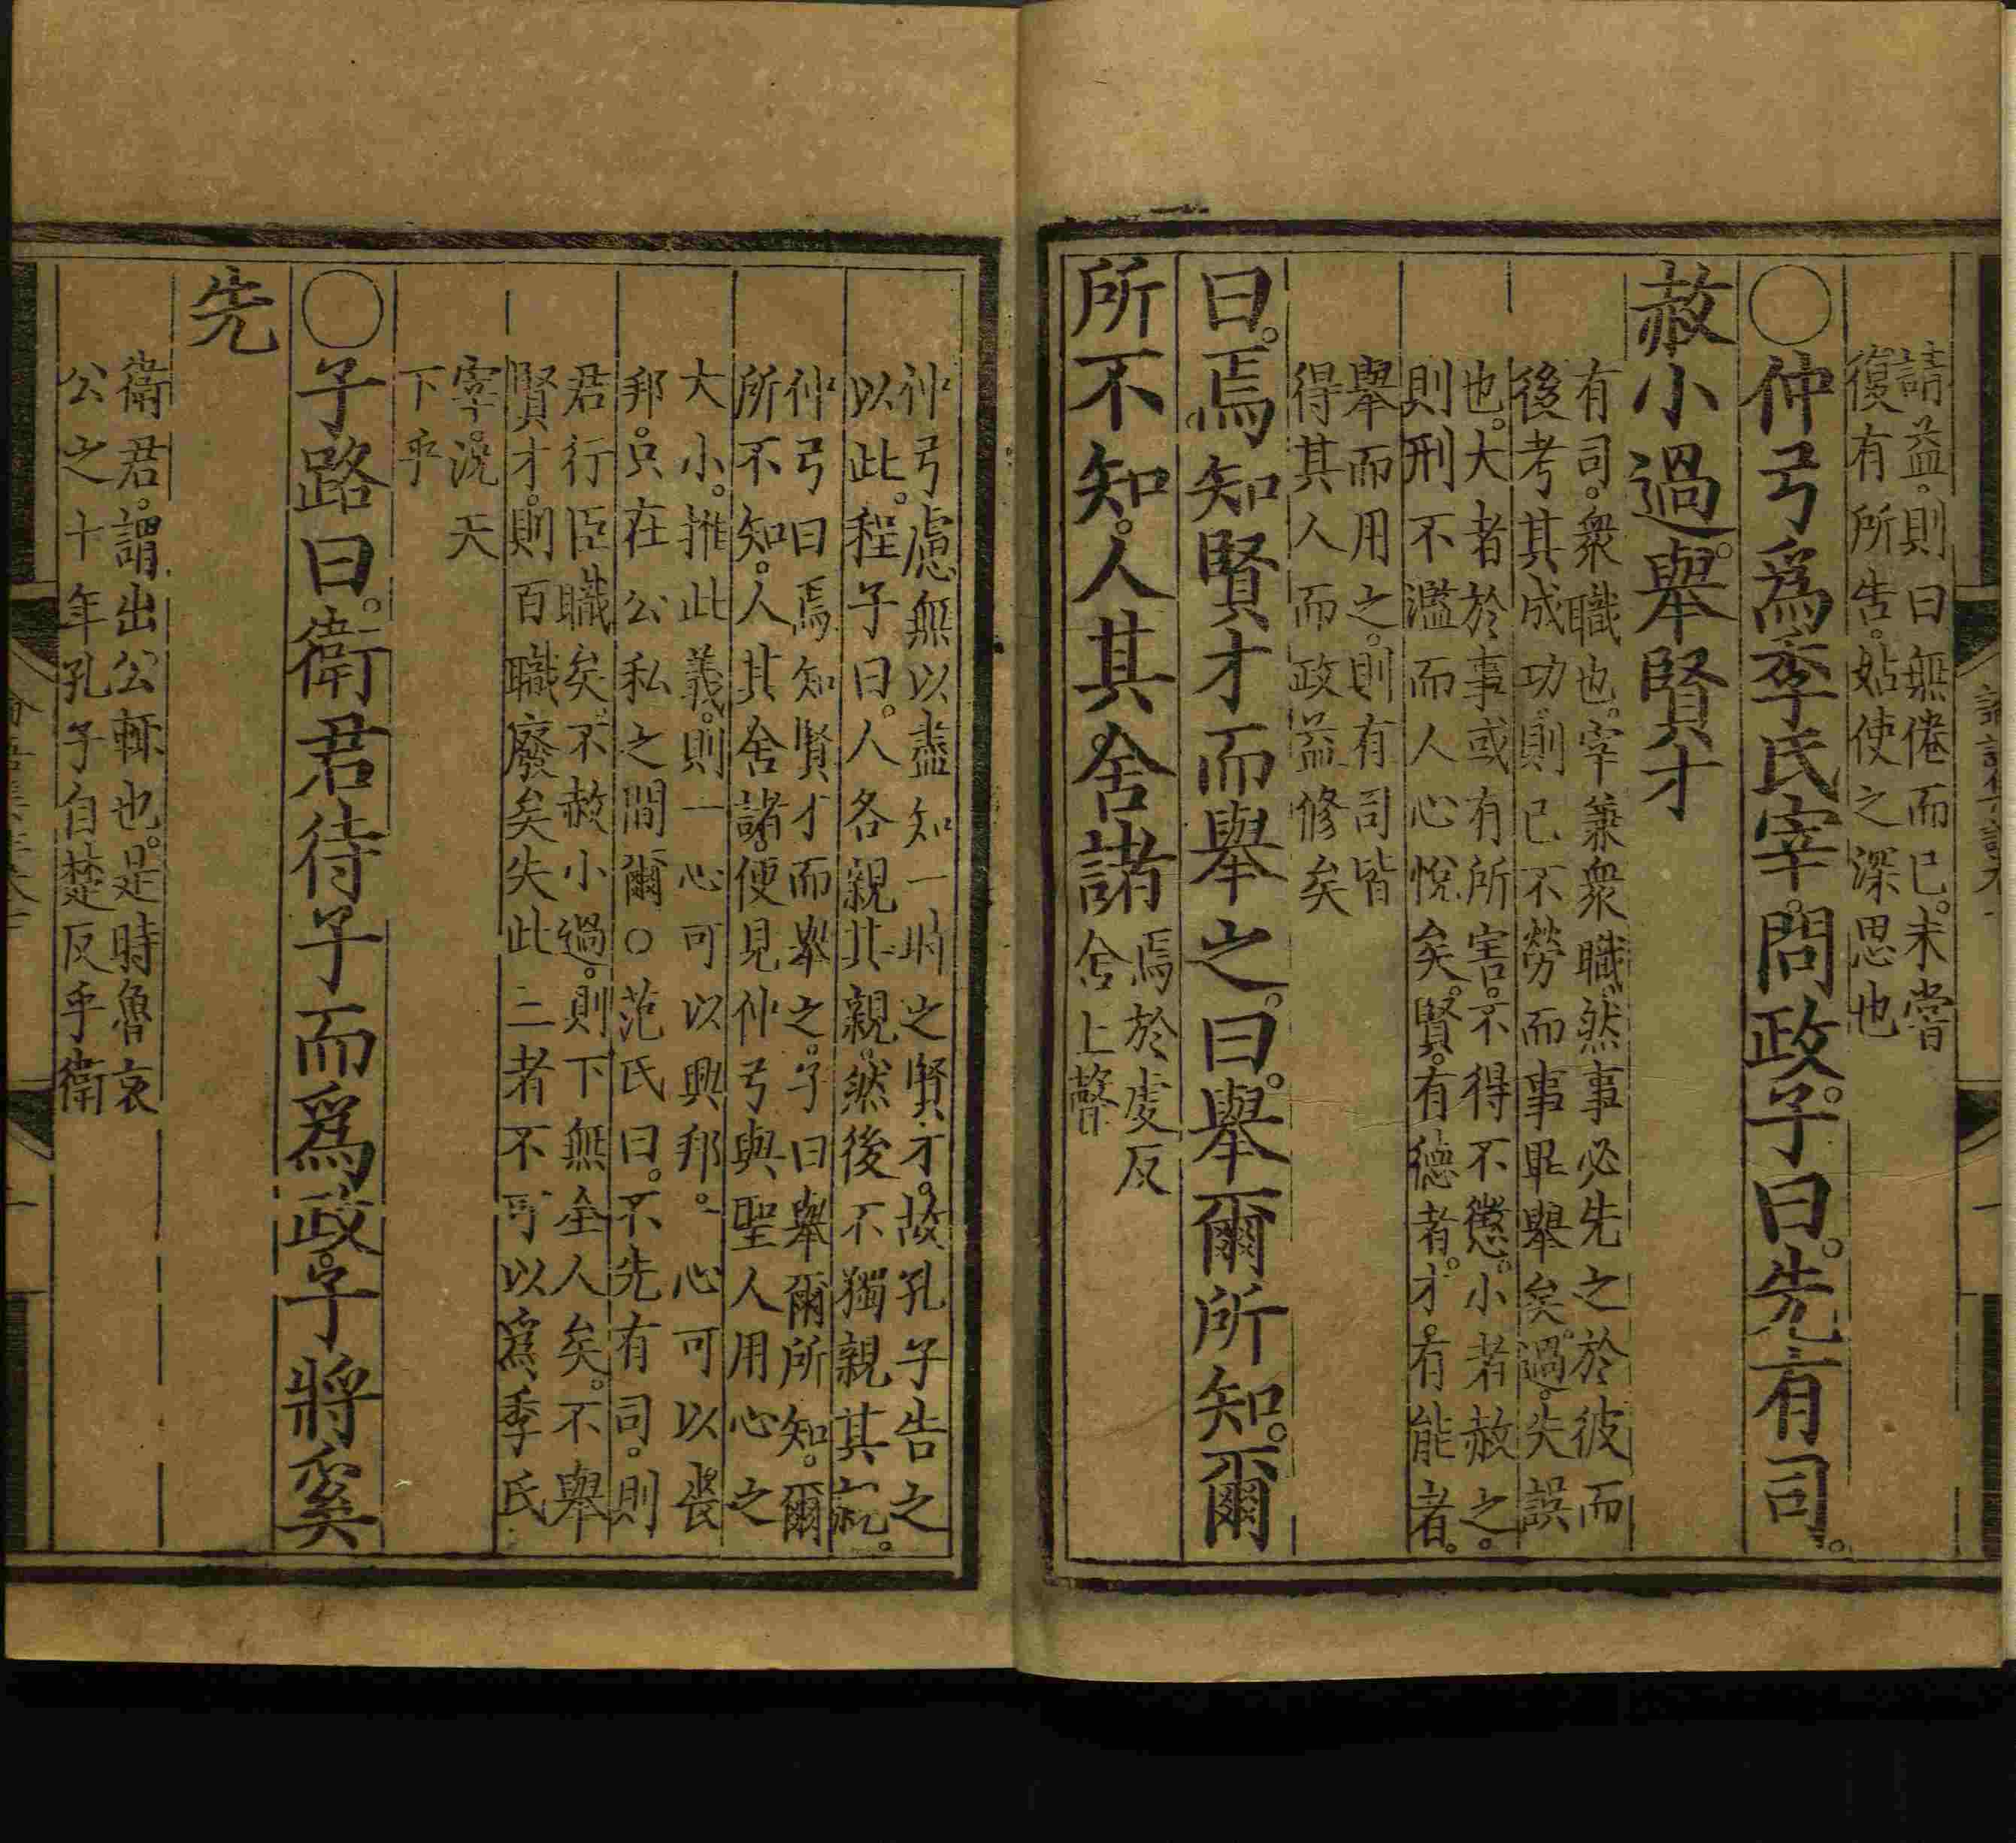 請益。則曰無倦而已。未嘗
復有所告。姑使之深思也
○仲弓爲季氏宰。問政。子曰。先有司。
赦小過。舉賢才
有司。衆職也。宰兼衆職。然事必先之於彼。而
後考其成功。則己不勞而事畢舉矣。過。失誤
也。大者於事或有所害。不得不懲。小者赦之。
則刑不濫而人心悅矣。賢。有德者。才。有能者。
舉而用之。則有司皆
得其人而政益修矣
曰。焉知賢才而舉之。曰。舉爾所知。爾
所不知。人其舍諸
焉於虔反
舍上聲
仲弓慮無以盡知一時之賢才。故孔子告之
以此。程子曰。人各親其親。然後不獨親其親。
仲弓曰焉知賢才而舉之。子曰舉爾所知。爾
所不知。人其舍諸。便見仲弓與聖人用心之
大小。推此義。則一心可以興邦。一心可以喪
邦。只在公私之間爾○范氏曰。不先有司。則
君行臣職矣。不赦小過。則下無全人矣。不舉
賢才。則百職廢矣失此二者不可以爲季氏
宰。況天
下乎
○子路曰。衛君待子而爲政。子將奚
先
衛君。謂出公輒也。是時魯哀
公之十年孔子自楚反乎衛